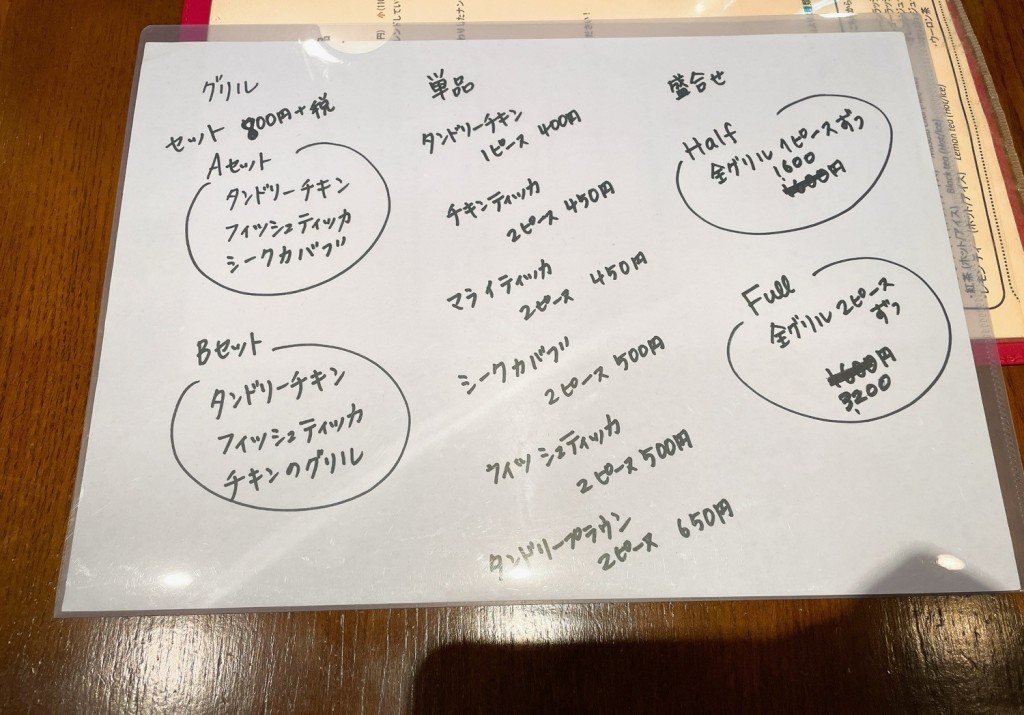 グリル
セット 800円+税
Aセット
タンドリーチキン
フィッシュティッカ
シークカバブ
Bセット
タンドリーチキン
フィッシュティッカ
チキンのグリル
単品
タンドリーチキン
1ピース 400円
チキンティッカ
2ピース 450円
マライティッカ
2ピース 450円
シークカバブ
2ピース 500円
フィッシュティッカ
2ピース 500円
タンドリープラウン
2ピース 650円
盛合せ
Half
全グリル 1ピースずつ
1600
円
Full
全グリル 2ピース
ずつ
円
3,200
紅茶 (ホット/アイス) Black tea (Hot/Ice)
レモンティ (ホット/アイス) Lemon tea (Hot/Ice)
・ウーロン茶